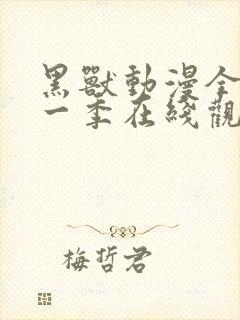 黑獸動漫全
一季在綫觀
梅哲君